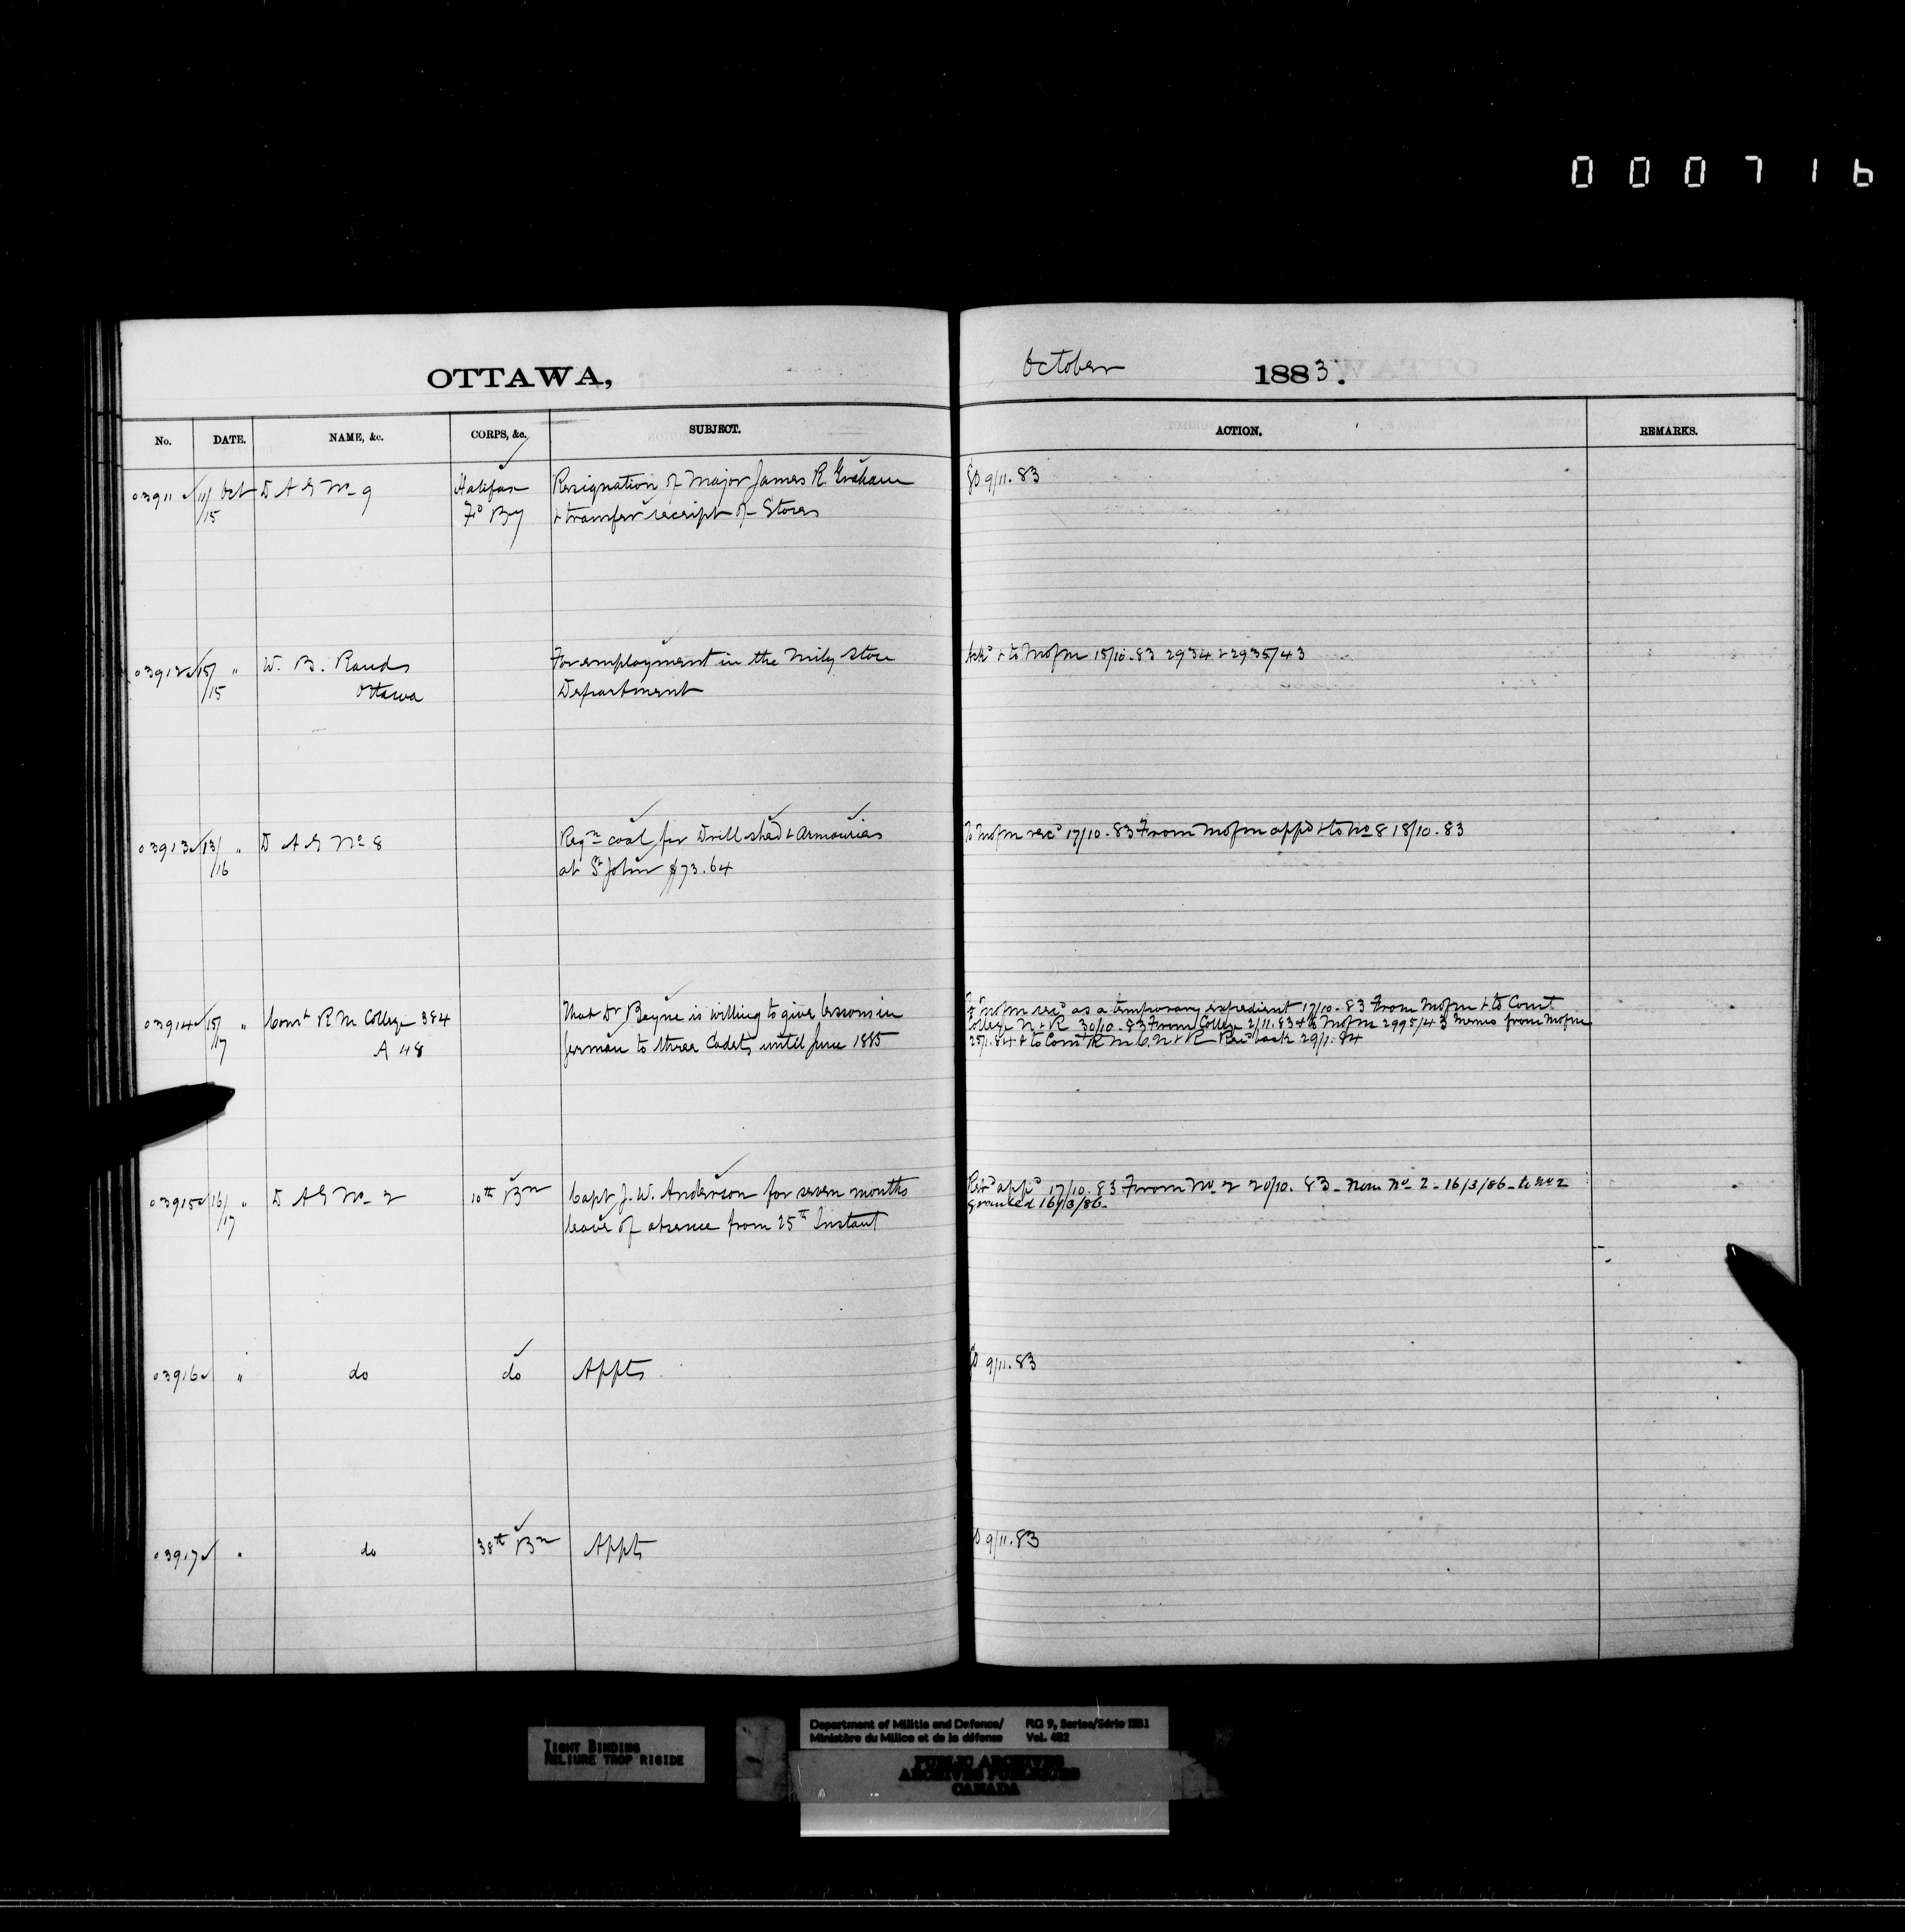 000716
OTTAWA,
October 1883.
No. DATE. NAME, &c. CORPS, &c. SUBJECT. ACTION. REMARKS.
03911 11/15 Oct D A G No 9 Halifax Resignation of Major James R. Graham GO 9/11.83
Fd By & transfer receipt of Stores
03912 15/15 " W. B. Rands For employment in the Mily Store Ackd & to MofM 15/10.83 2934 & 2935/43
Ottawa Department
03913 13/16 " D A G No 8 Reqn coal for Drill shed & Armouries To MofM recd 17/10.83 From MofM appd & to No 8 18/10.83
at St John $73.64
03914 15/17 " Comt R M College 384 That Dr Bayne is willing to give lessons in To MofM recd as a temporary expedient 17/10.83 From MofM & to Comt
A 48 German to three Cadets until June 1885 College N & R 30/10.83 From College 2/11.83 & to MofM 2995/43 memo from MofM
25/1.84 & to Comt R M C. N & R Recd back 29/1.84
03915 16/17 " D A G No 2 10th Bn Capt J. W. Anderson for seven months Retd appd 17/10.83 From No 2 20/10.83 - From No 2 - 16/3/86 - to No 2
leave of absence from 25th Instant granted 16/3/86.
03916 " do do Appts GO 9/11.83
03917 " do 38th Bn Appts GO 9/11.83
TIGHT BINDING
RELIURE TROP RIGIDE
Department of Militia and Defence/ RG 9, Series/Série IIB1
Ministère du Milice et de la défense Vol. 482
PUBLIC ARCHIVES
ARCHIVES PUBLIQUES
CANADA